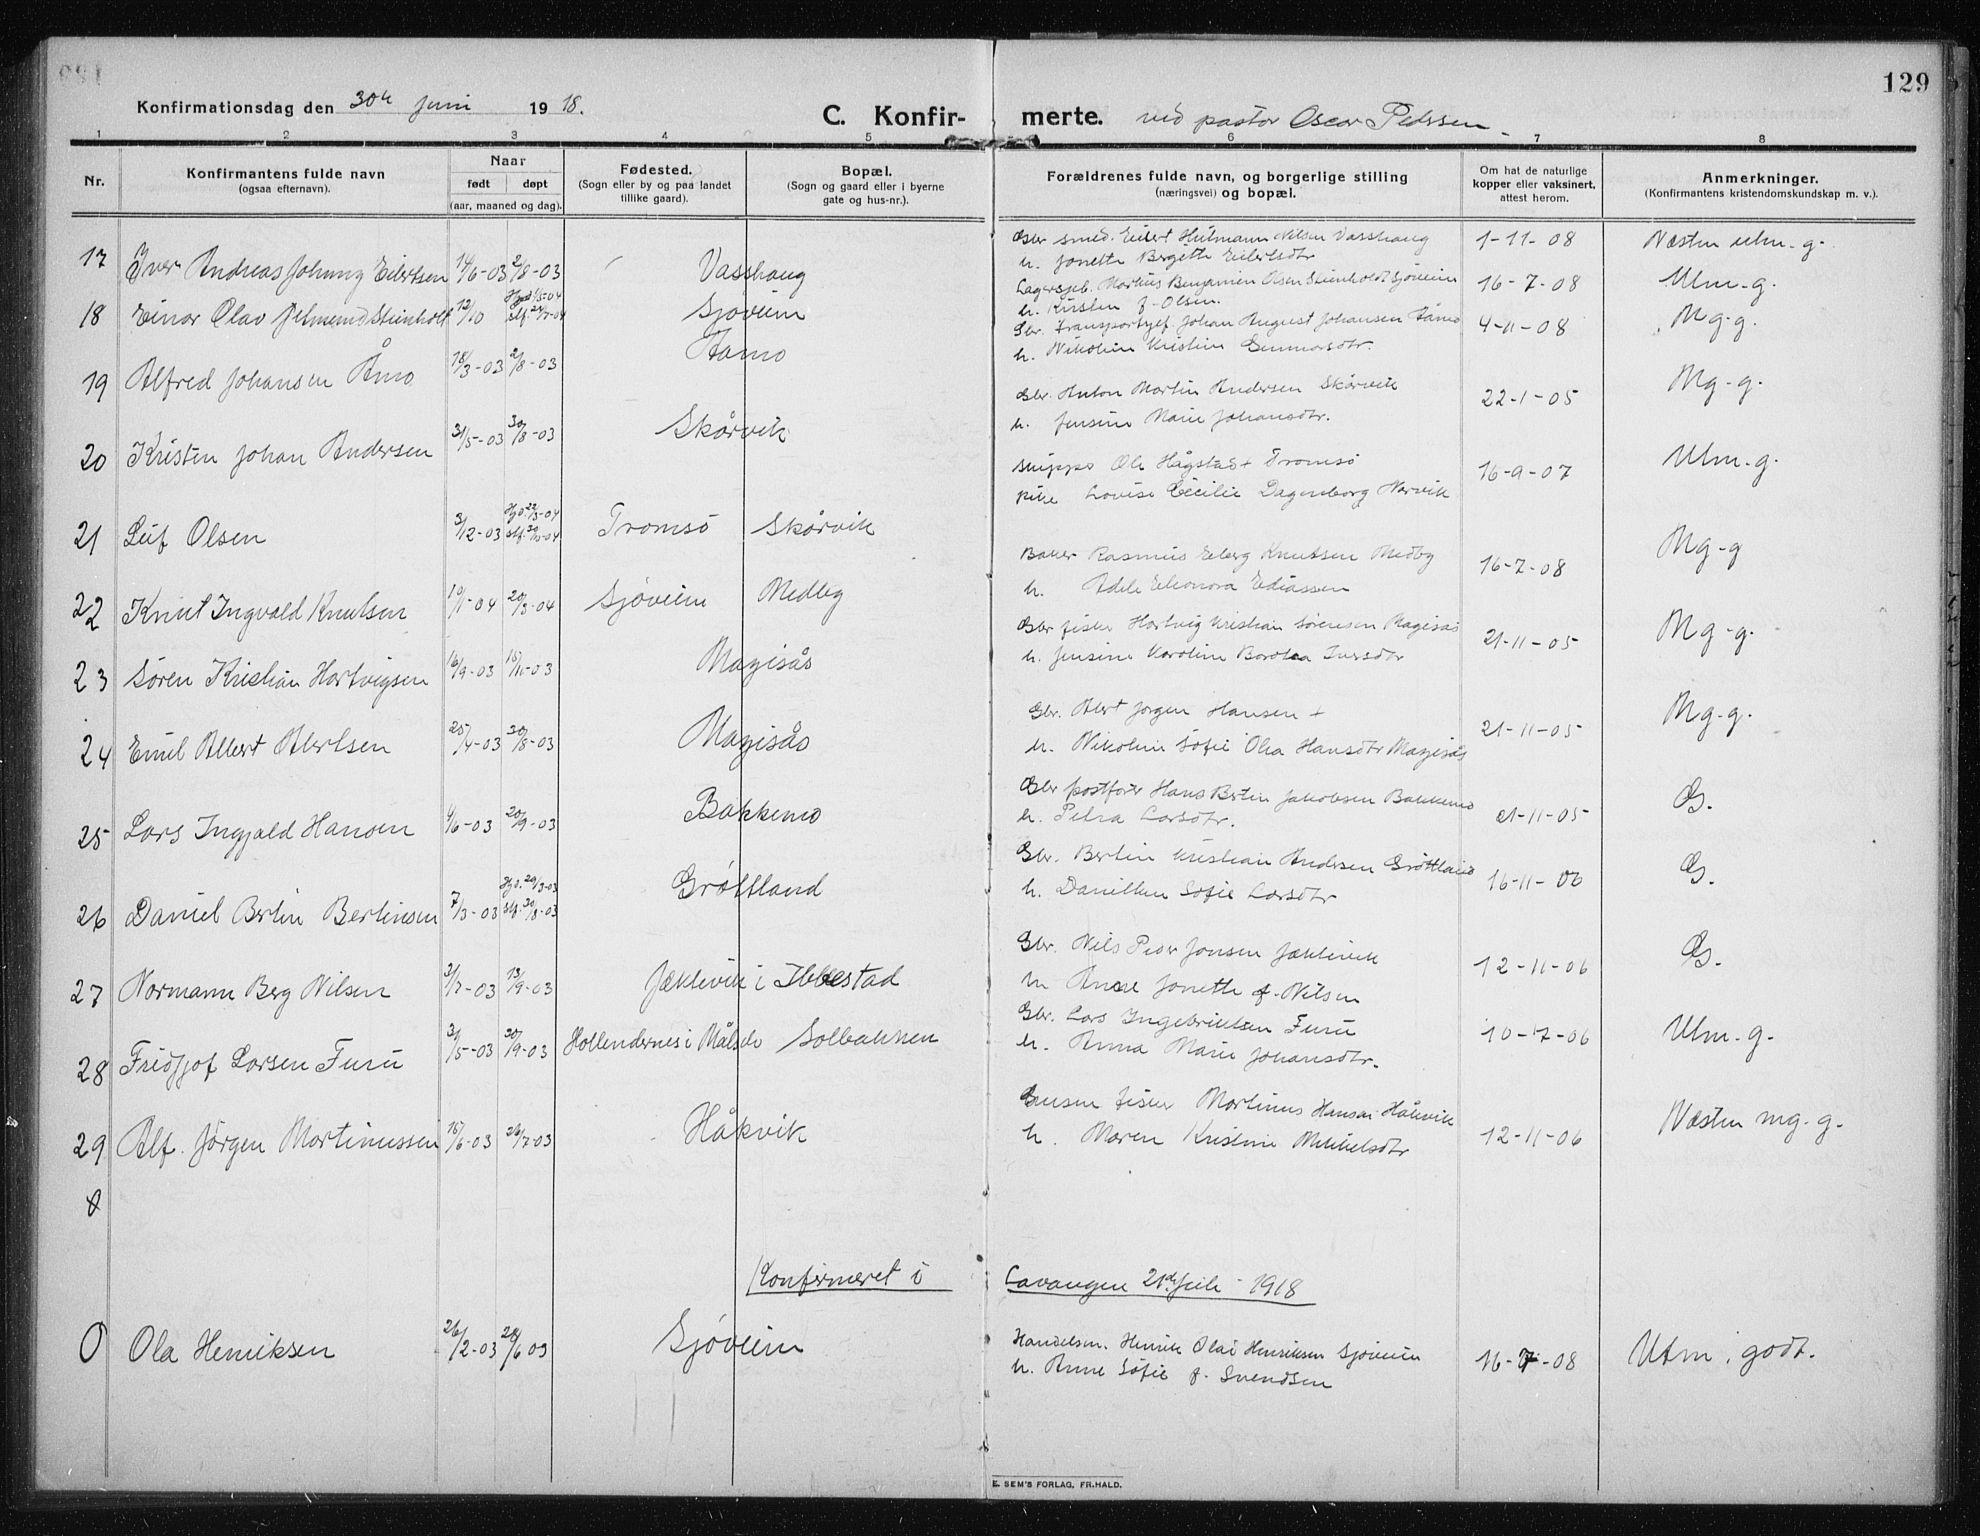 129
Konfirmationsdag den 30te juni 1918.
C. Konfirmerte. ved pastor Oscar Pedersen
1 2 3 4 5 6 7 8
Nr.
Konfirmantens fulde navn
(ogsaa efternavn).
Naar
født døpt
(aar, maaned og dag).
Fødested.
(Sogn eller by og paa landet
tillike gaard).
Bopæl.
(Sogn og gaard eller i byerne
gate og hus-nr.).
Forældrenes fulde navn, og borgerlige stilling
(næringsvei) og bopæl.
Om hat de naturlige
kopper eller vaksinert,
attest herom.
Anmerkninger.
(Konfirmantens kristendomskundskap m. v.).
17 Iver Andreas Johnny Eilertsen 14/6-03 2/8-03 Vasshaug
Gbr smed. Eilert Hilmann Nilsen Vasshaug 1-11-08 Næsten utm-g.
h. Jonette Bergitte Eilertsdtr
18 Einar Olav Steinholt 12/10 Sjøveien
Lagersjef. Martius Benjamin Olsen Steinholt Sjøveien 16-7-08 Utm-g.
h. Kirsten f. Olsen.
19 Alfred Johansen Åmo 18/3-03 2/8-03 Aamo
Gbr. Johan August Johansen Aamo 4-11-08 Mg-g.
h. Nikoline Kristine Gunnarsdtr.
20 Kristen Johan Andersen 31/5-03 30/8-03 Skårvik
Gbr. Anton Martin Andersen Skårvik 22-1-05 Mg-g.
h. Jensine Marie Johansdtr.
21 Leif Olsen 3/12-03 Tromsø Skårvik
Skipper Ole Hågstad + Tromsø 16-9-07 Utm-g.
Pike Lovise Cecilie Dagenborg Nervik
22 Knut Ingvald Knutsen 10/1-04 20/3-04 Sjøveien Medby
Baker Rasmus Eberg Knutsen Medby 16-7-08 Mg-g
h. Adele Eleonora Ediassen
23 Søren Kristian Hartvigsen 16/9-03 18/10-03 Magisås
Gbr fisker Hartvig Kristian Sørensen Magisås 21-11-05 Mg-g.
h. Jensine Karoline Iversdtr
24 Emil Albert Albertsen 25/4-03 30/8-03 Magisås
Gbr. Albert Jørgen Hansen + 21-11-05 Mg-g.
h. Nikoline Sofie Olea Hansdtr Magisås
25 Lars Ingjald Hansen 4/6-03 20/9-03 Bakkemo
Gbr postfører Hans Bertin Jakobsen Bakkemo 21-11-05 G.
h. Petra Larsdtr.
26 Daniel Bertin Bertinsen 7/3-03 Hjd. 29/3-03 stf. 30/8-03 Grøttland
Gbr. Bertin Kristian Andersen Grøttland 16-11-06 G.
h. Danilken Sofie Larsdtr
27 Normann Berg Nilsen 2/7-03 13/9-03 Jektevik i Ibbestad
Gbr. Nils Peder Jonsen Jektevik 12-11-06 G.
h. Anne Jonette f. Nilsen
28 Fridtjof Larsen Furu 31/5-03 30/9-03 Hollendernes i Målselv Solbakken
Gbr. Lars Ingebriktsen Furu 10-7-06 Utm-g.
h. Anna Marie Johansdtr.
29 Alf. Jørgen Martinussen 15/6-03 26/7-03 Håkvik
fisker Martinus Hansen Håkvik 12-11-06 Næsten mg-g.
h. Maren Kristine Mikkelsdtr
Konfirmeret i Lavangen 21de Juli 1918
0 Ola Henriksen 26/2-03 28/6 03 Sjøveien
Handelsm. Henrik Olai Henriksen Sjøveien 16-7-08 Utm. godt.
h. Anne Sofie f. Svendsen
E. SEM'S FORLAG, FR.HALD.